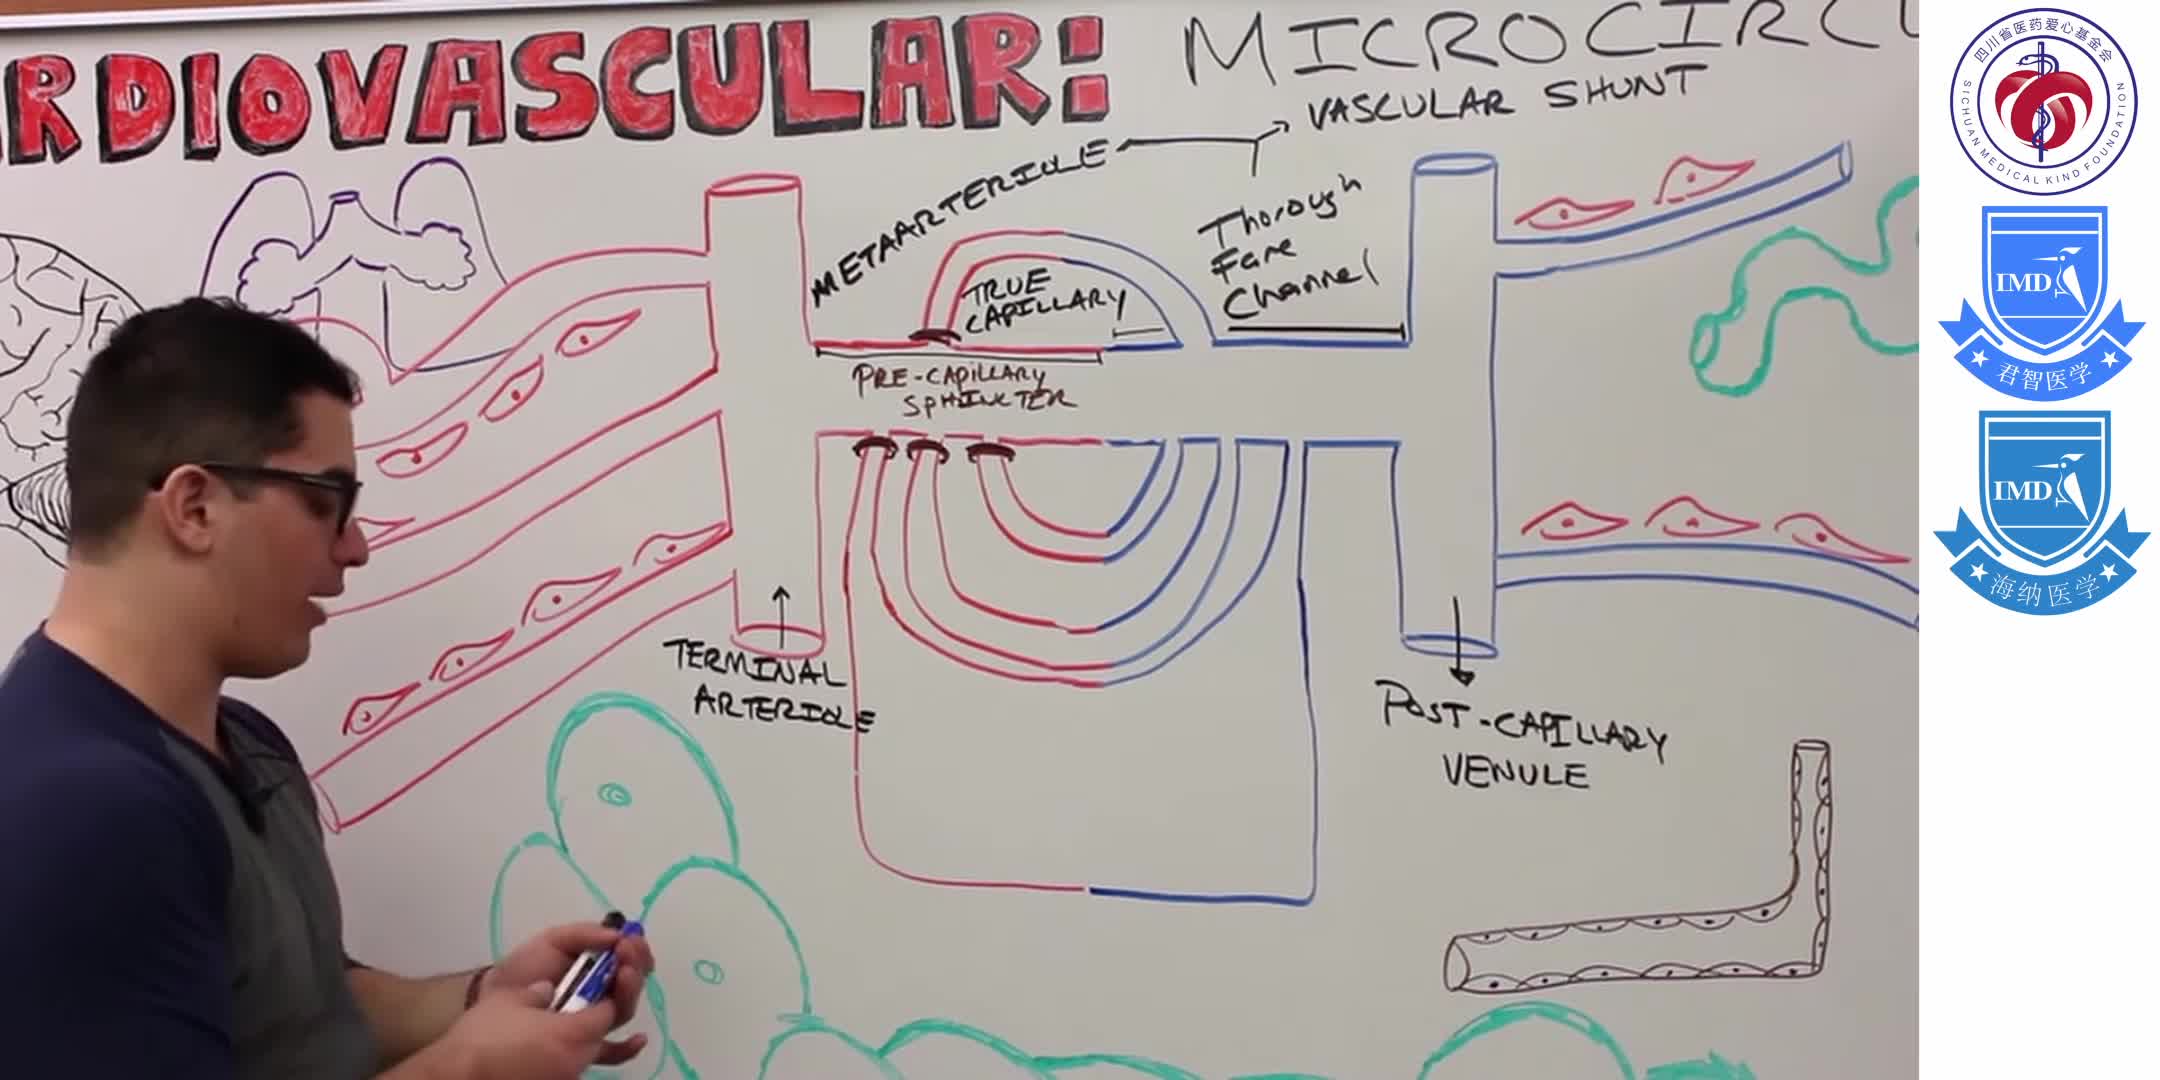 RDIOVASCULAR:
MICROCIRCU
VASCULAR SHUNT
METAARTERIOLE
Thorough
Fare
Channel
TRUE
CAPILLARY
PRE-CAPILLARY
SPHINCTER
TERMINAL
ARTERIOLE
POST-CAPILLARY
VENULE
四川省医药爱心基金会
SICHUAN MEDICAL KIND FOUNDATION
IMD
君智医学
IMD
海纳医学